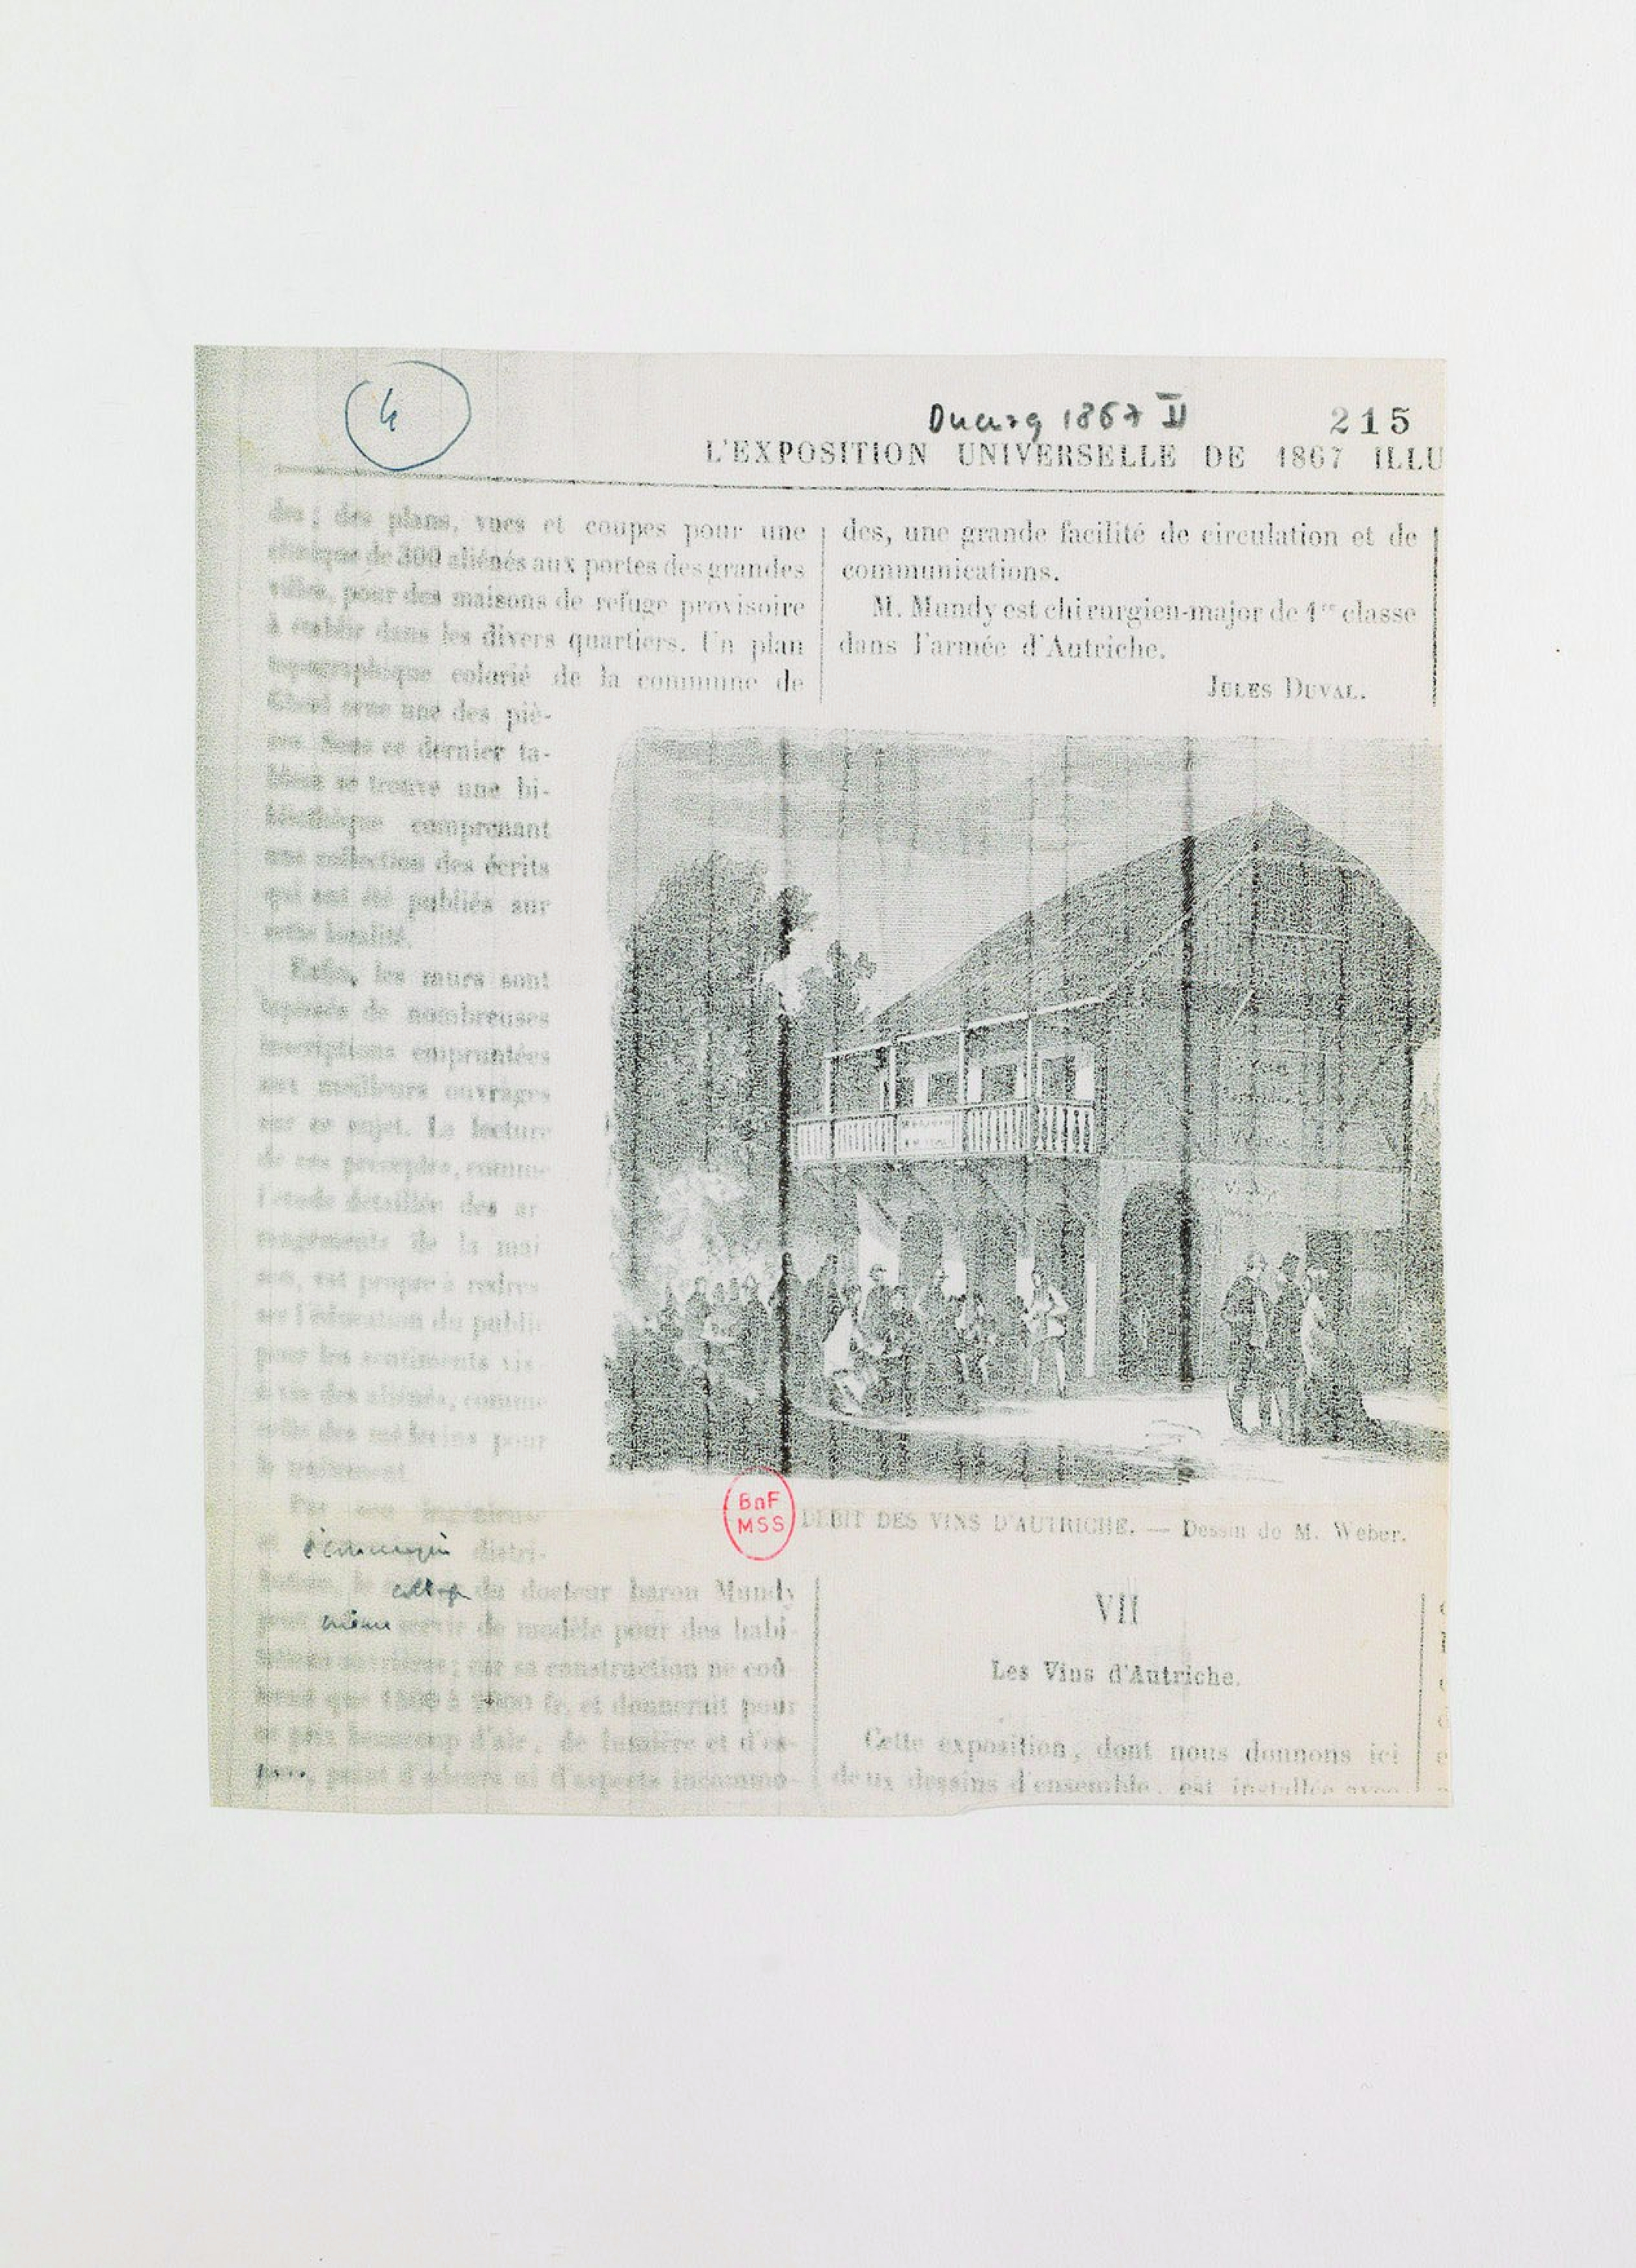 4
Ducuing 1867 II
215
L'EXPOSITION UNIVERSELLE DE 1867 ILLU
des; des plans, vues et coupes pour une
clinique de 300 aliénés aux portes des grandes
villes, pour des maisons de refuge provisoire
à établir dans les divers quartiers. Un plan
topographique colorié de la commune de
Gheel orne une des piè-
ces. Sous ce dernier ta-
bleau se trouve une bi-
bliothèque comprenant
une collection des écrits
qui ont été publiés sur
cette localité.
Enfin, les murs sont
tapissés de nombreuses
inscriptions empruntées
aux meilleurs ouvrages
sur ce sujet. La lecture
de ces preceptes, comme
l'étude détaillée des ar
rangements de la mai
son, est propre à redres
ser l'éducation du public
pour les sentiments vis
à vis des aliénés, comme
celle des médecins pour
le traitement.
Par son ingénieuse
et économique distri-
bution, le cottage du docteur baron Mundy
peut même servir de modèle pour des habi-
tations ouvrières; car sa construction ne coû
terait que 1500 à 2000 fr. et donnerait pour
ce prix beaucoup d'air, de lumière et d'es-
pace, point d'odeurs ni d'aspects incommo-
des, une grande facilité de circulation et de
communications.
M. Mundy est chirurgien-major de 1re classe
dans l'armée d'Autriche.
JULES DUVAL.
BnF
MSS
DEBIT DES VINS D'AUTRICHE. — Dessin de M. Weber.
VII
Les Vins d'Autriche.
Cette exposition, dont nous donnons ici
deux dessins d'ensemble, est installée avec